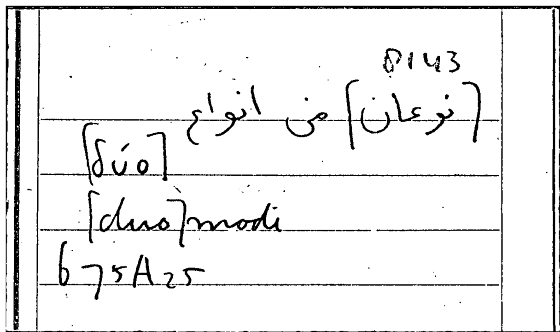 0143
[نوعان] من انواع
[δύο]
[duo] modi
675A25